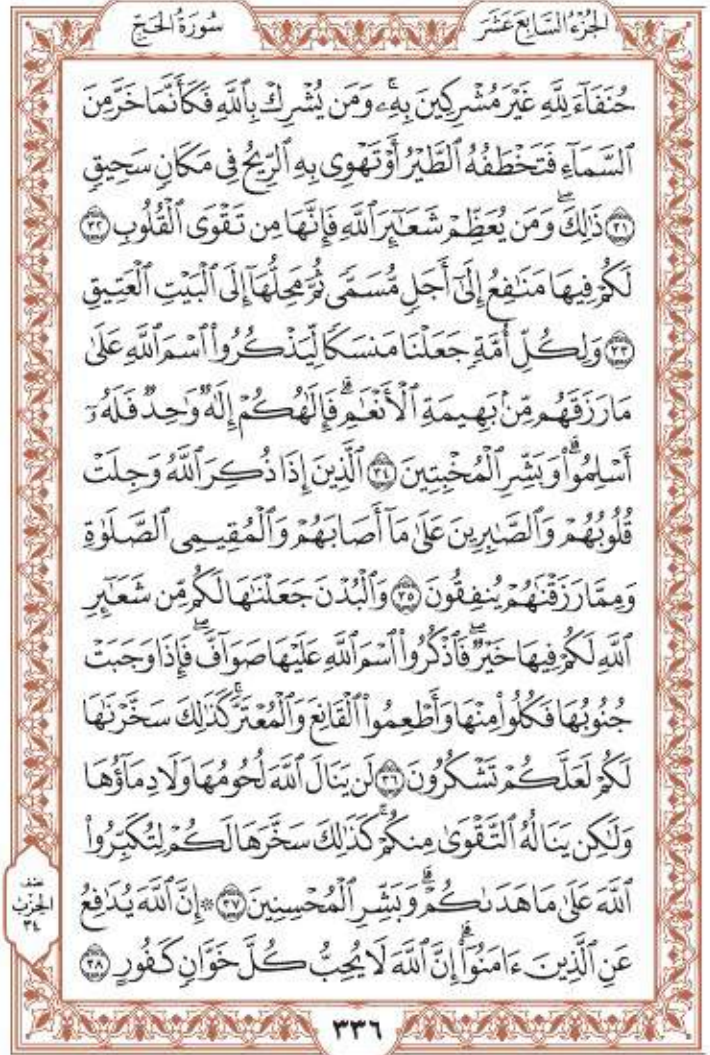 الجُزْءُ السَّابِعَ عَشَرَ
سُورَةُ الحَجِّ
حُنَفَآءَ لِلَّهِ غَيْرَ مُشْرِكِينَ بِهِۦۚ وَمَن يُشْرِكْ بِٱللَّهِ فَكَأَنَّمَا خَرَّ مِنَ
ٱلسَّمَآءِ فَتَخْطَفُهُ ٱلطَّيْرُ أَوْ تَهْوِى بِهِ ٱلرِّيحُ فِى مَكَانٍ سَحِيقٍ
٣١ ذَٰلِكَۖ وَمَن يُعَظِّمْ شَعَـٰٓئِرَ ٱللَّهِ فَإِنَّهَا مِن تَقْوَى ٱلْقُلُوبِ ٣٢
لَكُمْ فِيهَا مَنَـٰفِعُ إِلَىٰٓ أَجَلٍ مُّسَمًّى ثُمَّ مَحِلُّهَآ إِلَى ٱلْبَيْتِ ٱلْعَتِيقِ
٣٣ وَلِكُلِّ أُمَّةٍ جَعَلْنَا مَنسَكًا لِّيَذْكُرُوا۟ ٱسْمَ ٱللَّهِ عَلَىٰ
مَا رَزَقَهُم مِّنۢ بَهِيمَةِ ٱلْأَنْعَـٰمِۗ فَإِلَـٰهُكُمْ إِلَـٰهٌ وَٰحِدٌ فَلَهُۥٓ
أَسْلِمُوا۟ۗ وَبَشِّرِ ٱلْمُخْبِتِينَ ٣٤ ٱلَّذِينَ إِذَا ذُكِرَ ٱللَّهُ وَجِلَتْ
قُلُوبُهُمْ وَٱلصَّـٰبِرِينَ عَلَىٰ مَآ أَصَابَهُمْ وَٱلْمُقِيمِى ٱلصَّلَوٰةِ
وَمِمَّا رَزَقْنَـٰهُمْ يُنفِقُونَ ٣٥ وَٱلْبُدْنَ جَعَلْنَـٰهَا لَكُم مِّن شَعَـٰٓئِرِ
ٱللَّهِ لَكُمْ فِيهَا خَيْرٌۖ فَٱذْكُرُوا۟ ٱسْمَ ٱللَّهِ عَلَيْهَا صَوَآفَّۖ فَإِذَا وَجَبَتْ
جُنُوبُهَا فَكُلُوا۟ مِنْهَا وَأَطْعِمُوا۟ ٱلْقَانِعَ وَٱلْمُعْتَرَّۚ كَذَٰلِكَ سَخَّرْنَـٰهَا
لَكُمْ لَعَلَّكُمْ تَشْكُرُونَ ٣٦ لَن يَنَالَ ٱللَّهَ لُحُومُهَا وَلَا دِمَآؤُهَا
وَلَـٰكِن يَنَالُهُ ٱلتَّقْوَىٰ مِنكُمْۚ كَذَٰلِكَ سَخَّرَهَا لَكُمْ لِتُكَبِّرُوا۟
ٱللَّهَ عَلَىٰ مَا هَدَىٰكُمْۗ وَبَشِّرِ ٱلْمُحْسِنِينَ ٣٧ ۞ إِنَّ ٱللَّهَ يُدَٰفِعُ
عَنِ ٱلَّذِينَ ءَامَنُوٓا۟ۗ إِنَّ ٱللَّهَ لَا يُحِبُّ كُلَّ خَوَّانٍ كَفُورٍ ٣٨
نصف
الحزب
٣٤
٣٣٦